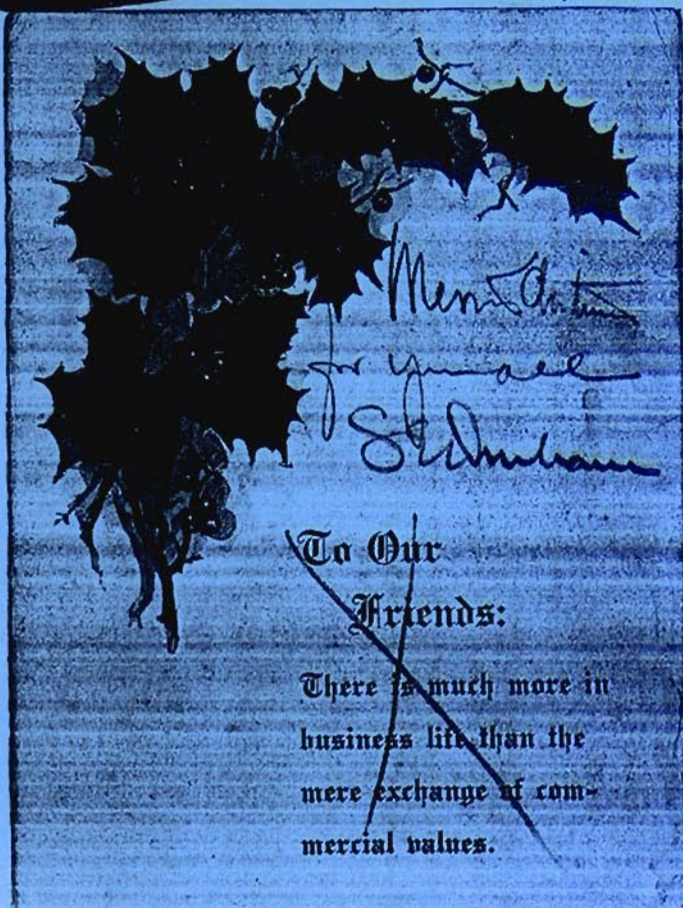 Merry Christmas
for you all
To Our
Friends:
There is much more in
business life than the
mere exchange of com-
mercial values.